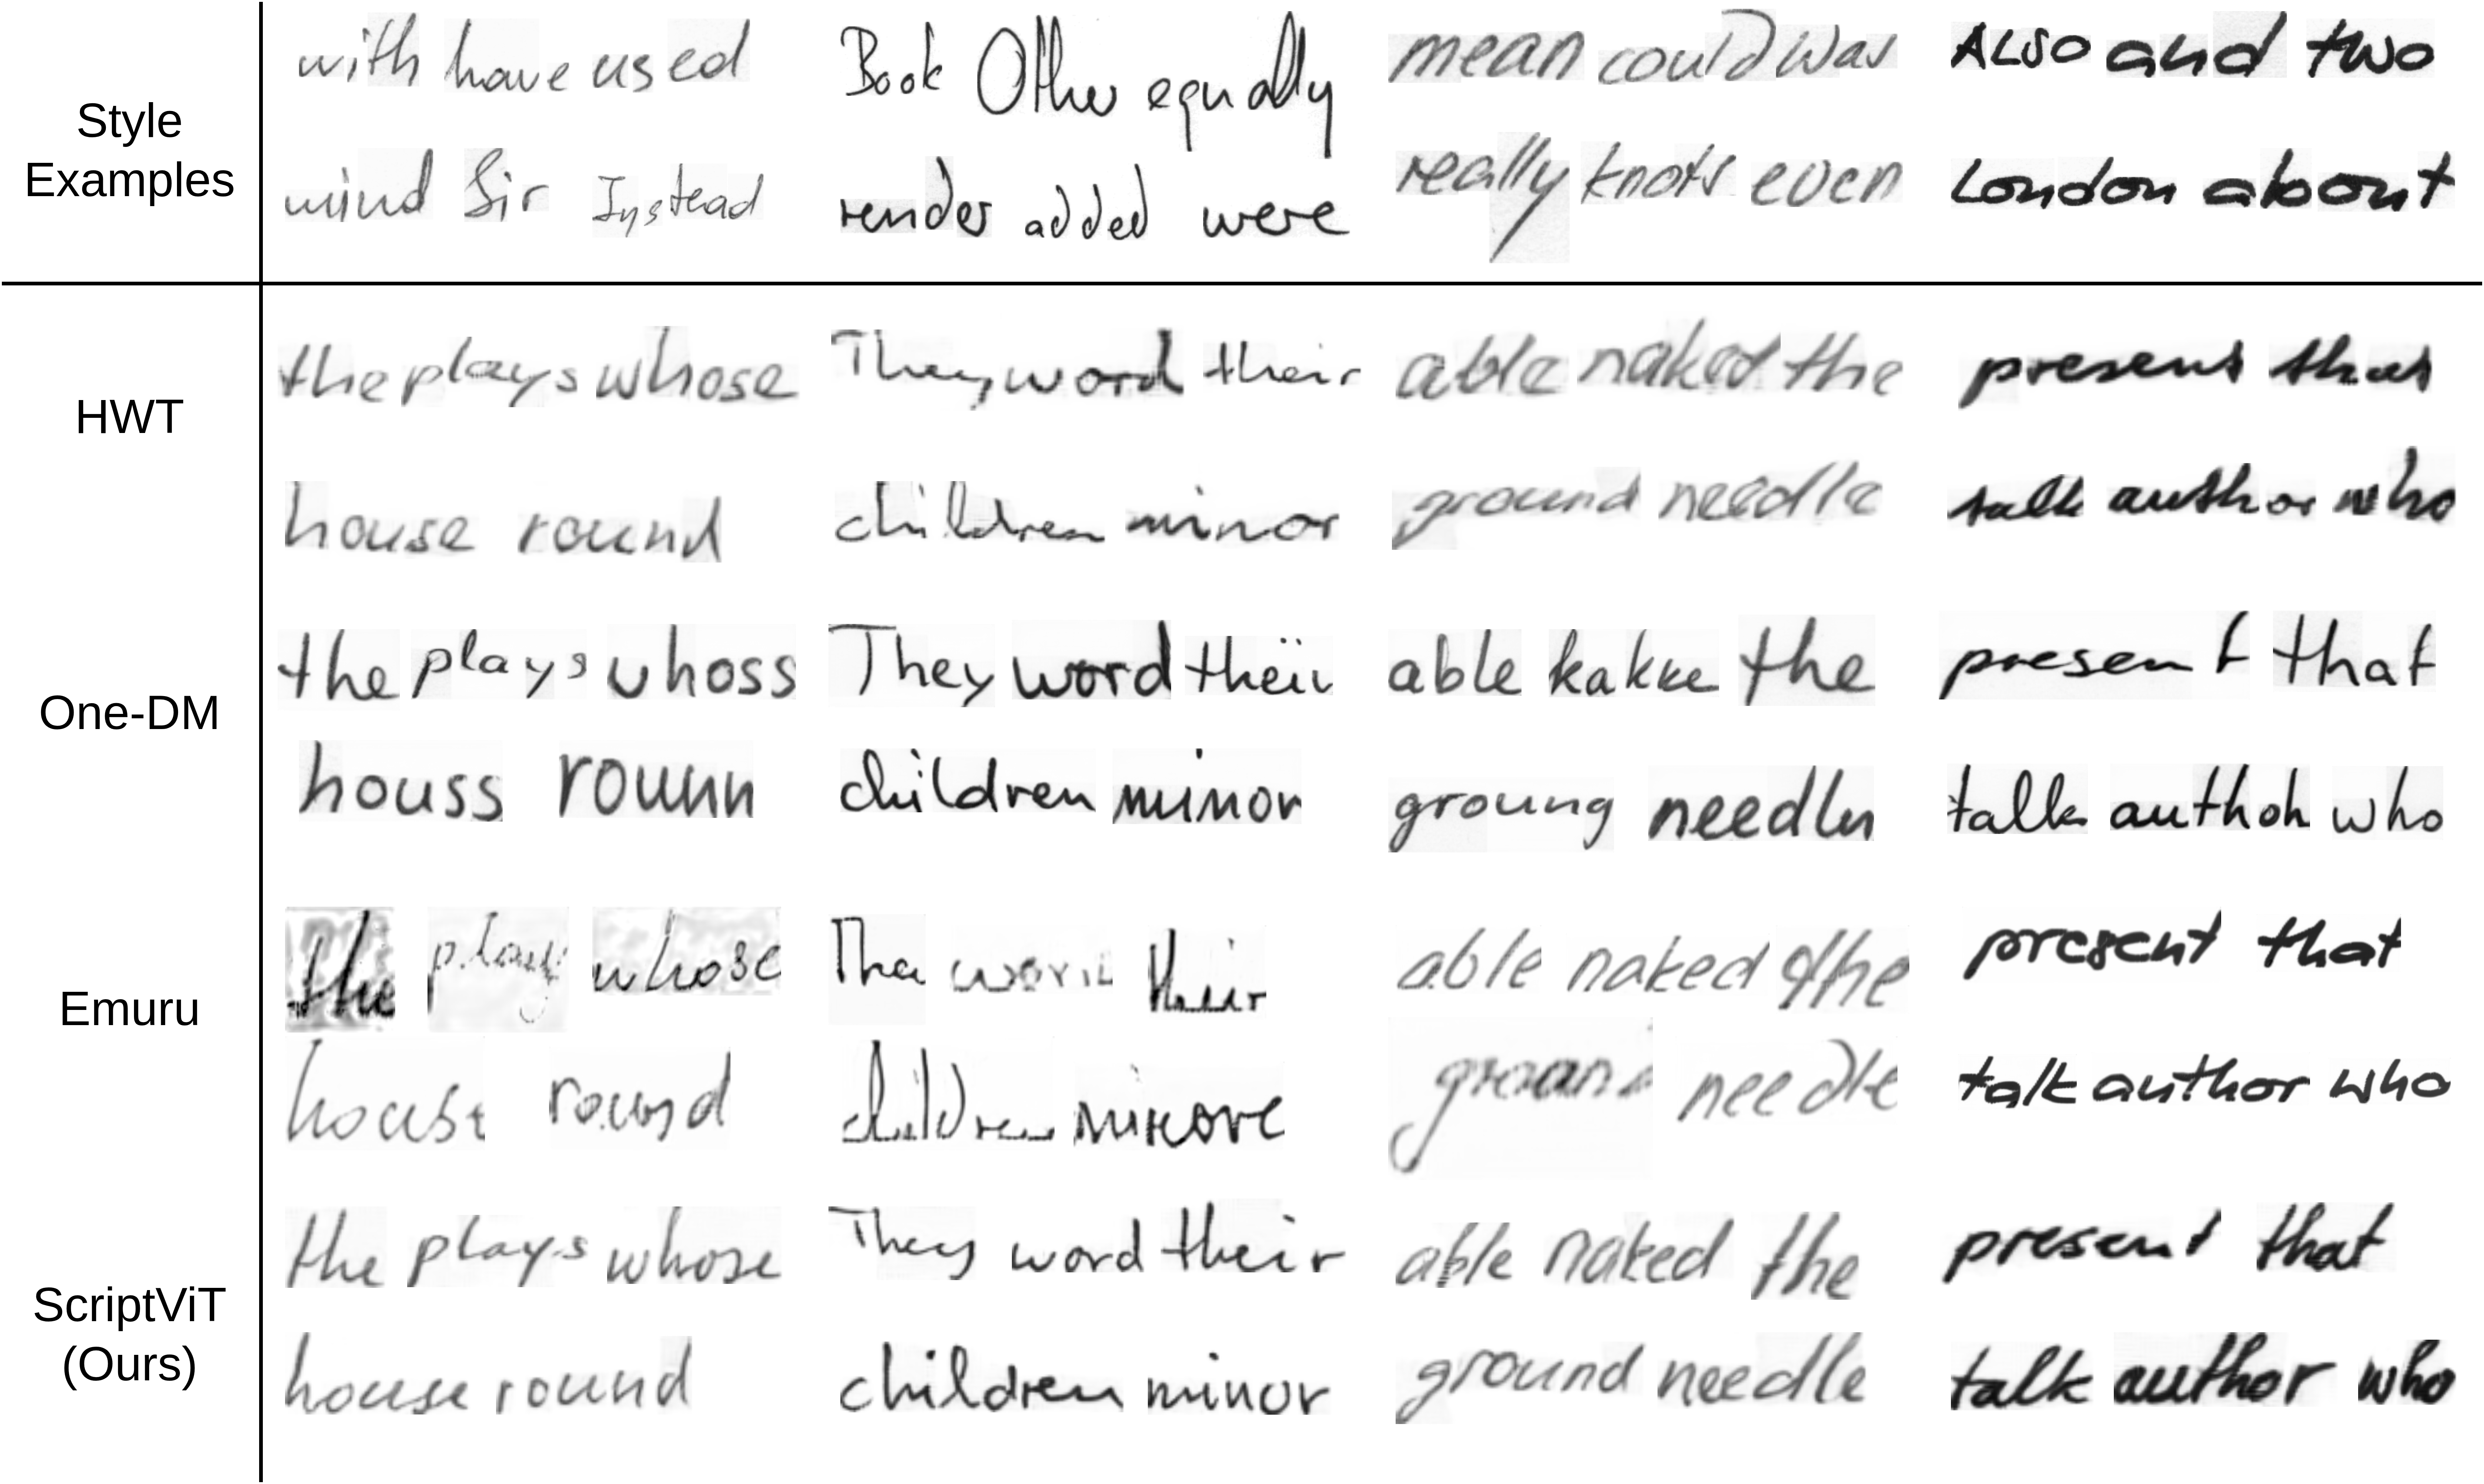 Style
Examples
with have used Book Other equally mean could was ALSO and two
mind Sir Instead render added were really knots even London about
HWT
the plays whose They word their able naked the present that
house round children minor ground needle talk author who
One-DM
the plays whoss They word their able kakke the present that
houss rounn children minor groung needln talk authoh who
Emuru
the play whose The woril their able naked the present that
house round children minore groand needle talk author who
ScriptViT
(Ours)
the plays whose They word their able naked the present that
house round children minor ground needle talk author who